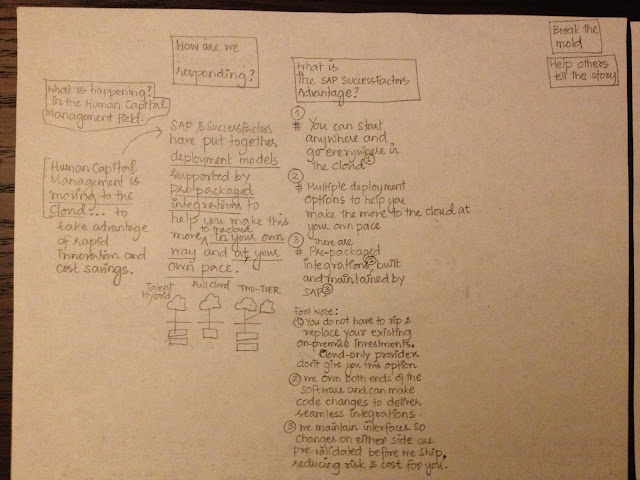 What is happening?
in the Human Capital
Management field.
Human Capital
Management is
moving to the
cloud... to
take advantage
of rapid
innovation and
cost savings.
How are we
responding?
SAP & SuccessFactors
have put together
deployment models
supported by
pre-packaged
integrations to
help you make this
move to the cloud in your own
way and at your
own pace.
Talent
Hybrid
Full Cloud
TWO-TIER
What is
the SAP SuccessFactors
Advantage?
①
# You can start
anywhere and
go everywhere in
the cloud ①
②
# Multiple deployment
options to help you
make the move to the cloud at
your own pace
③ There are
# Pre-packaged
integrations ②, built
and maintained by
SAP ③
Foot Note:
① You do not have to rip &
replace your existing
on-premise investments.
Cloud-only provider
don't give you this option
② We own both ends of the
software and can make
code changes to deliver
seamless integrations.
③ We maintain interfaces so
changes on either side are
pre-validated before we ship,
reducing risk & cost for you.
Break the
mold
Help others
tell the story